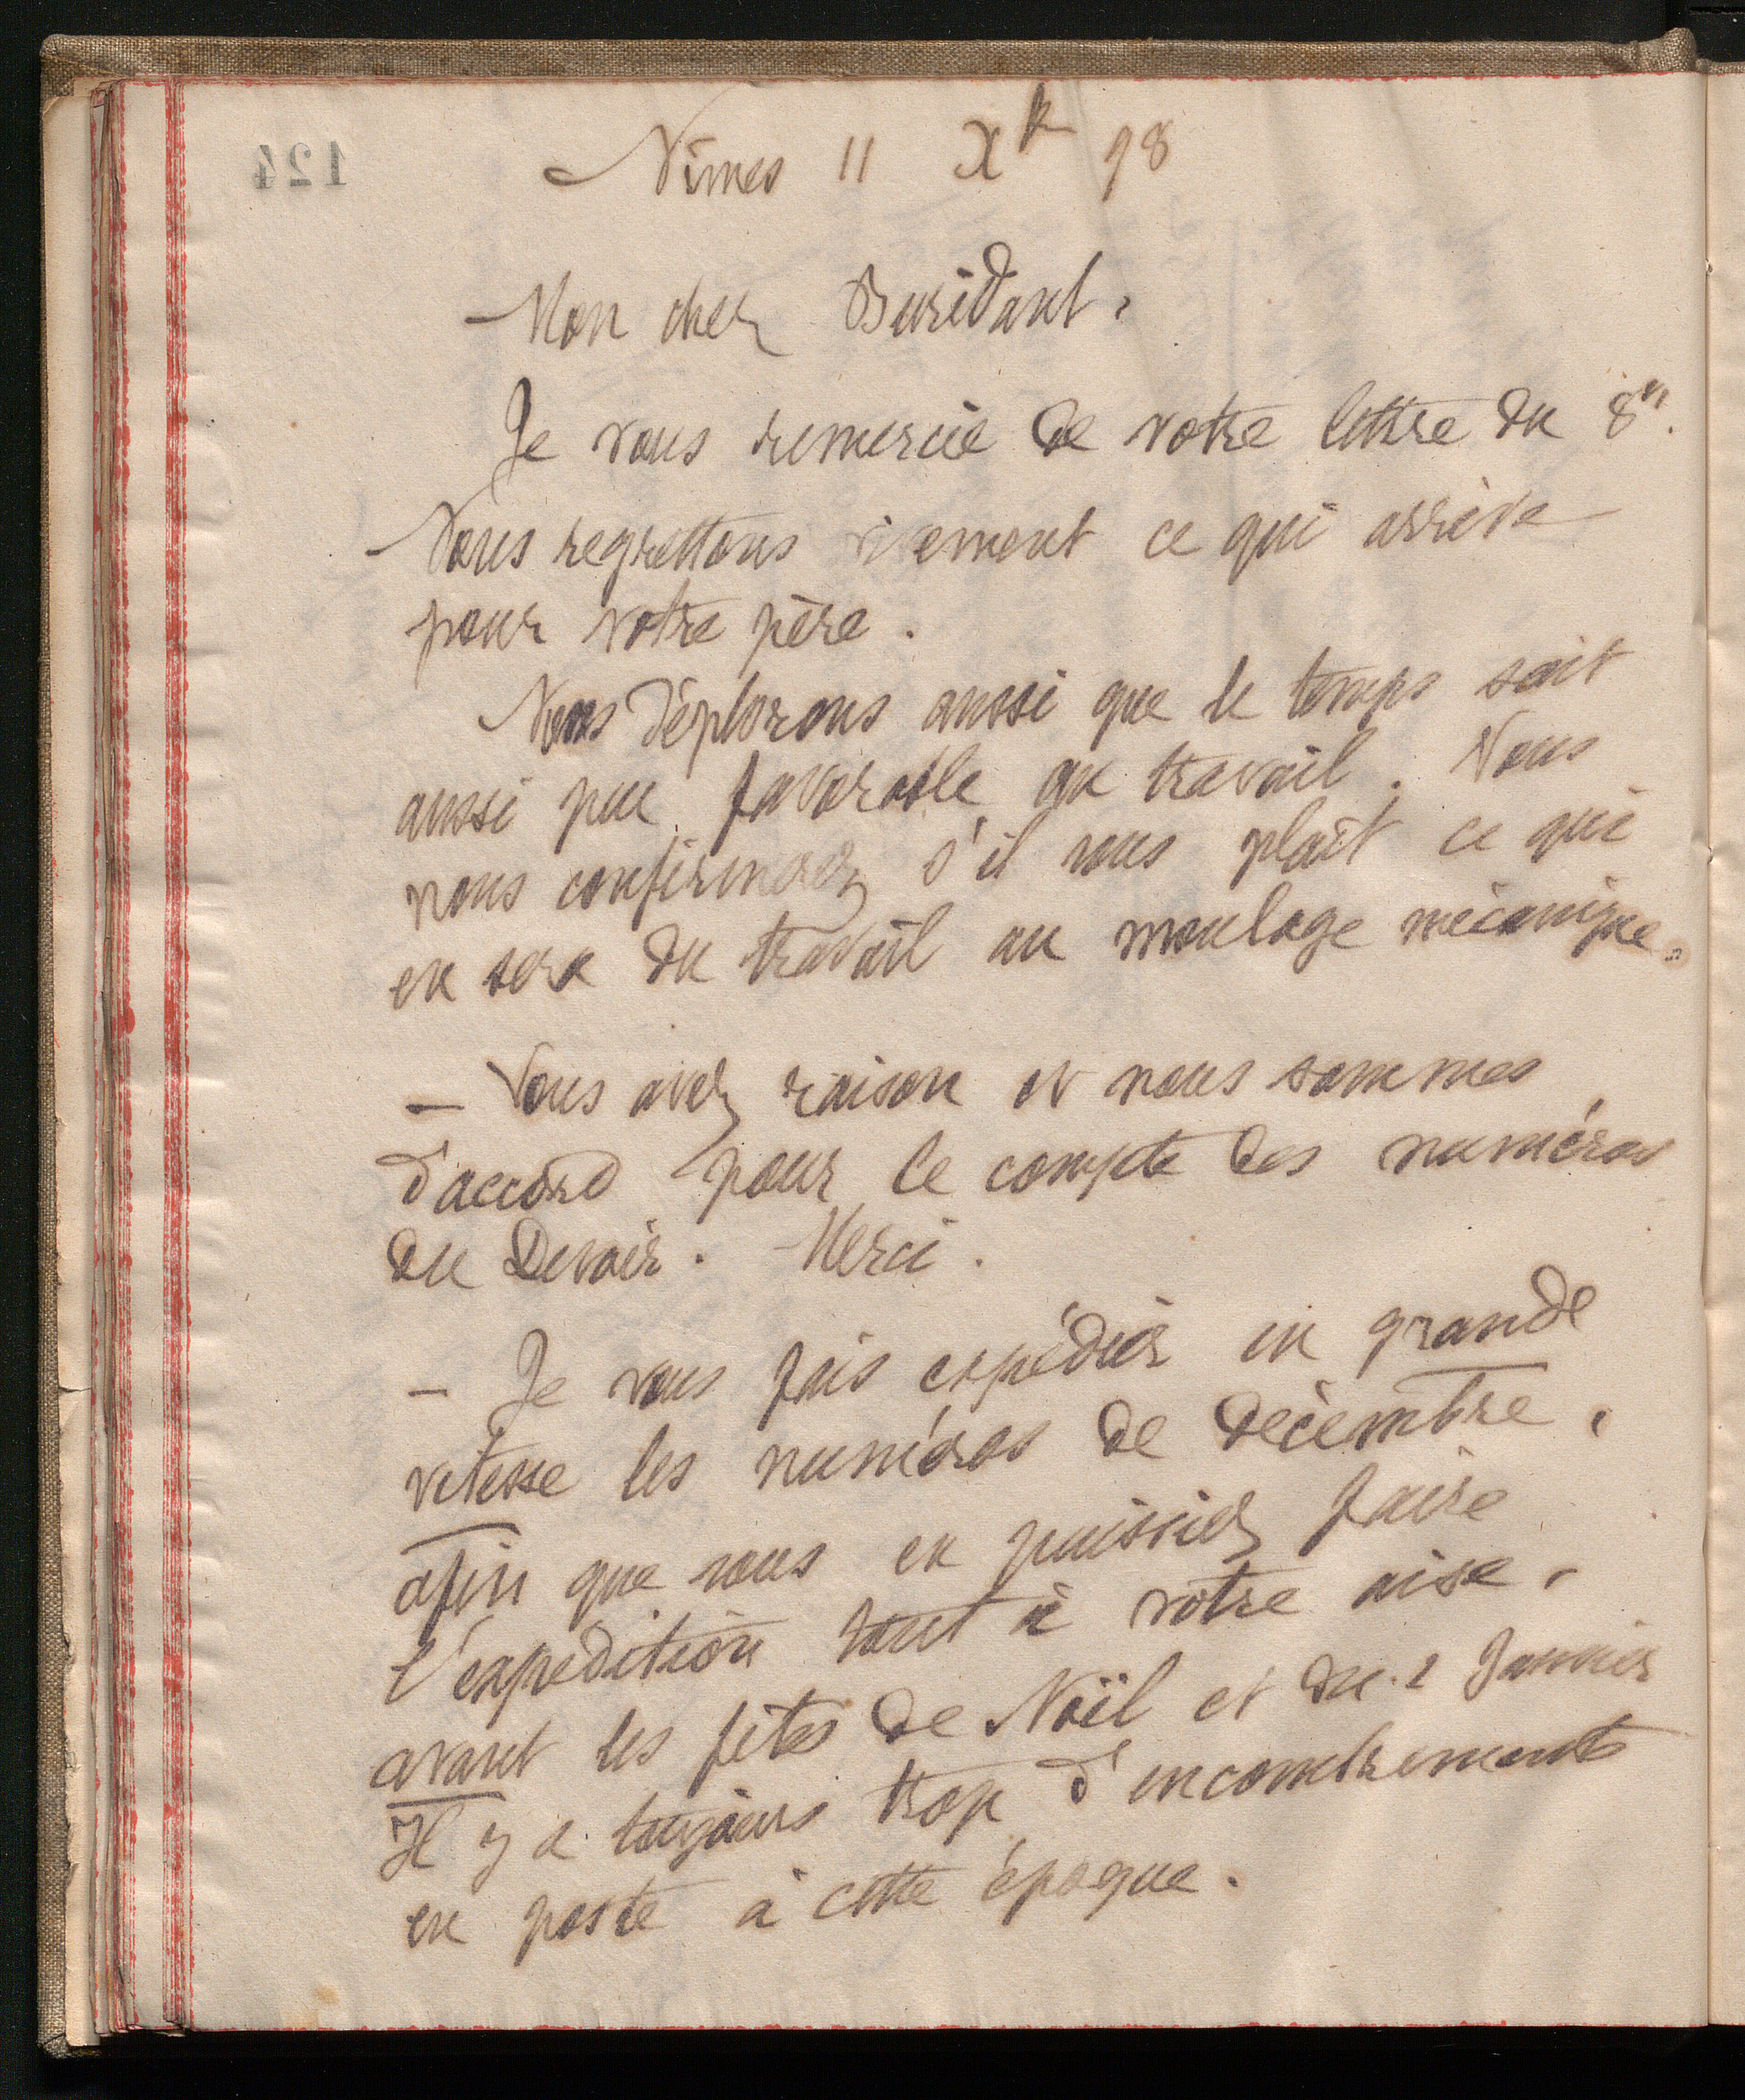 124
Nîmes 11 Xbre 98
Mon cher Buridant,
Je vous remercie de votre lettre du 8ct.
Nous regrettons vivement ce qui arrive
pour votre père.
Nous déplorons aussi que le temps soit
aussi peu favorable au travail. Vous
nous confirmerez s'il vous plaît ce qui
en sera du travail au moulage mécanique.
— Vous avez raison et nous sommes
d'accord pour le compte des numéros
du Devoir. Merci.
— Je vous fais expédier en grande
vitesse les numéros de décembre,
afin que vous en puissiez faire
l'expédition tout à votre aise,
avant les fêtes de Noël et du 1 Janvier
Il y a toujours trop d'encombrements
en poste à cette époque.